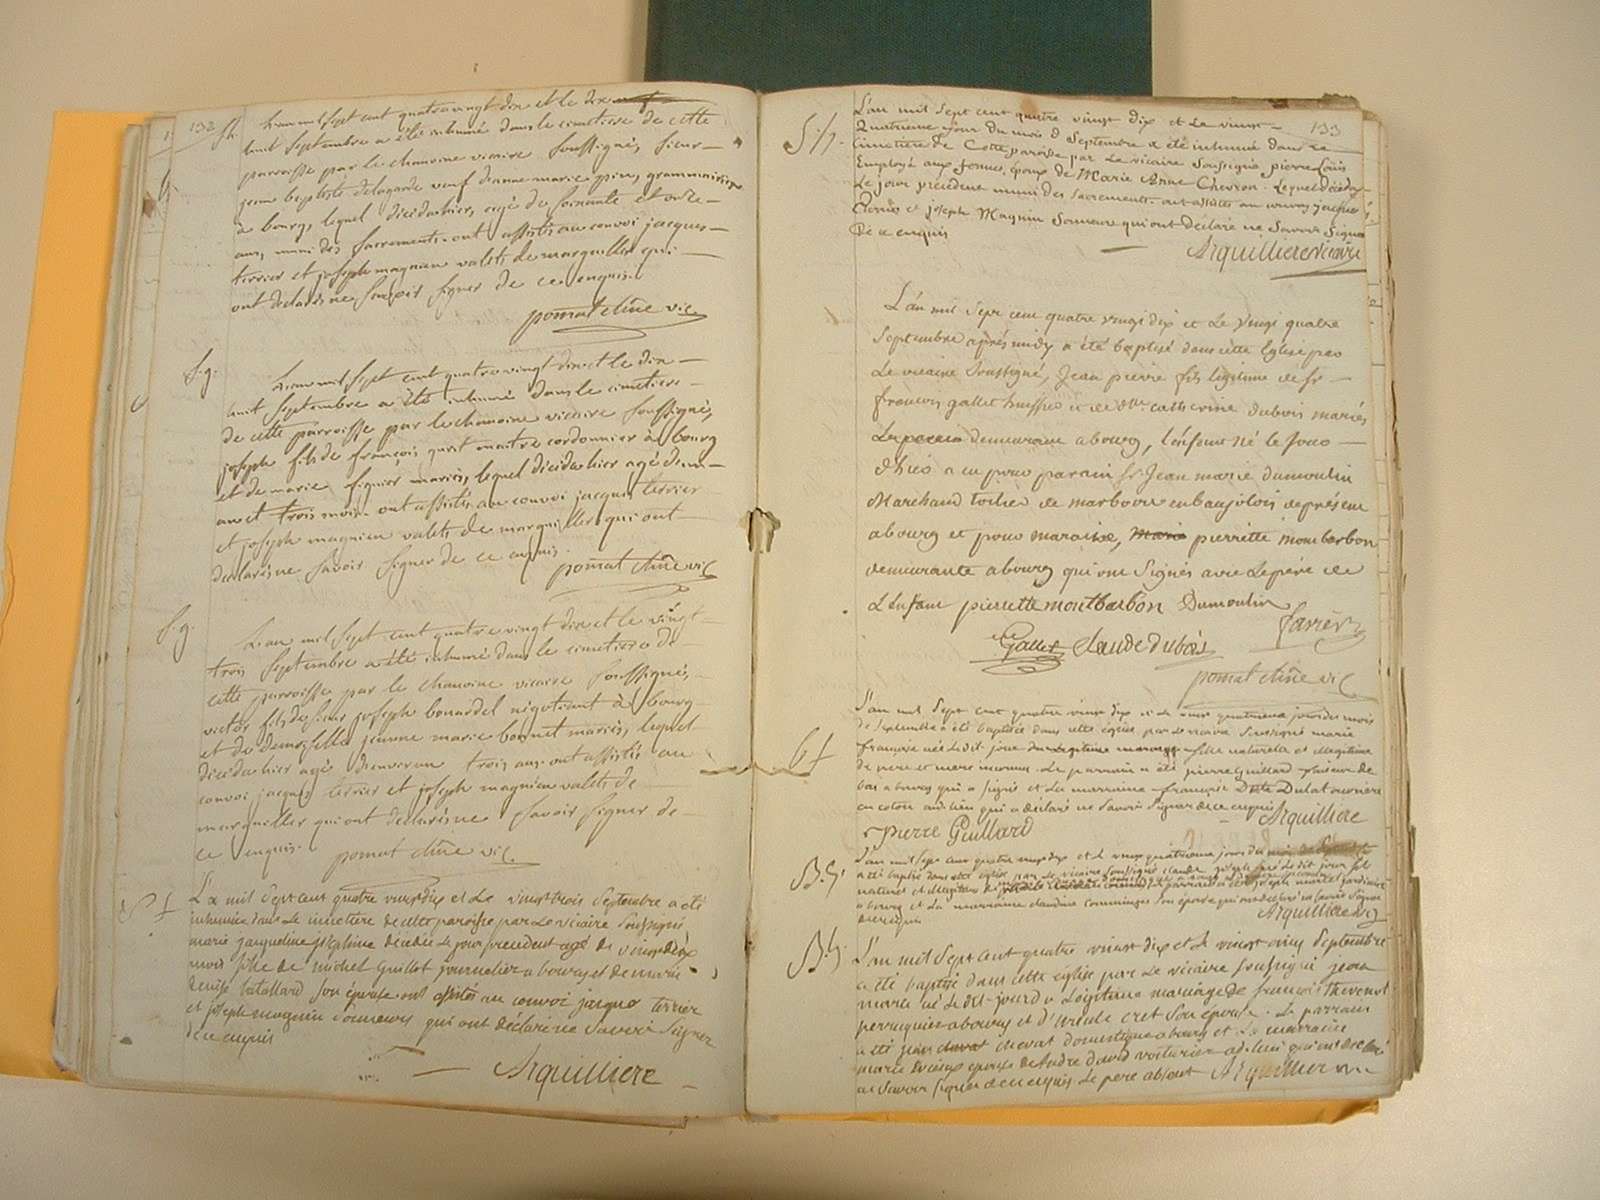 132
Sh.
L'an mil sept cent quatre vingt dix et le dix
huit septembre a été inhumé dans le cimetiere de cette
parroisse par le chanoine vicaire soussigné, sieur
jean baptiste delagarde veuf d'anne marie grammairien
a bourg, lequel décéda hier, agé de soixante et onze
ans, muni des sacrements. ont assistés au convoi jacques
terrier et joseph magnien valets de marguillier qui
ont déclarés ne savoir signer de ce enquis.
pomat chne vic.
S. g.
L'an mil sept cent quatre vingt dix et le dix
huit septembre a été inhumé dans le cimetiere
de cette parroisse par le chanoine vicaire soussigné,
joseph fils de françois maitre cordonnier à bourg
et de marie figuier mariés, lequel décéda hier agé d'un
an et trois mois. ont assistés au convoi jacques terrier
et joseph magnien valets de marguillier qui ont
déclarés ne savoir signer de ce enquis.
pomat chne vic
S. g.
L'an mil sept cent quatre vingt dix et le vingt
trois septembre a été inhumé dans le cimetiere de
cette parroisse par le chanoine vicaire soussigné,
victor fils de sieur joseph bonardel négotiant à bourg
et de demoiselle jeanne marie bonnet mariés, lequel
décéda hier agé d'environ trois ans. ont assistés au
convoi jacques terrier et joseph magnien valets de
marguiller qui ont déclarés ne savoir signer de
ce enquis. pomat chne vic.
S f
L'a mil sept cent quatre vingt dix et le vingt trois septembre a été
inhumée dans le cimetiere de cette paroisse par le vicaire soussigné
marie jacqueline josephine décédée le jour precedent agé de vingt deux
mois fille de michel Guillot journalier a bourg et de marie
denise batallard son épouse ont assistés au convoi jacques terrier
et joseph magnin sonneurs qui ont déclaré ne savoir signer
de ce enquis
Arquilliere
133
S. h.
L'an mil sept cent quatre vingt dix et le vingt
Quatrieme jour du mois d septembre a été inhumé dans le
cimetiere de Cette paroisse par le vicaire soussigné pierre Louis
Employé aux fermes, époux de Marie Anne Chevron. Lequel décéda
le jour précédent muni des sacrements. ont assistés au convoi jacques
Terrier et joseph Magnin sonneurs qui ont déclaré ne savoir signer
de ce enquis
Arquilliere vicaire
L'an mil sept cent quatre vingt dix et le vingt quatre
septembre après midy a été baptisé dans cette Eglise par
le vicaire soussigné, jean pierre fils légitime de sr
françois gallet huissier et de dlle catherine dubois mariés
demeurant a bourg, l'enfant né le jour
d'hier a eu pour parain sr jean marie dumoulin
Marchand toilier de en baujolois de présent
a bourg et pour maraine, marie pierrette montbarbon
demeurante a bourg qui ont signés avec le père de
L'enfant pierrette montbarbon Dumoulin
Gallet Claude dubois favier
pomat chne vic
b f
L'an mil sept cent quatre vingt dix et le vingt quatrieme jour du mois
de septembre a été baptisée dans cette église par le vicaire soussigné marie
françoise née le dit jour fille naturelle et illegitime
de pere et mere inconnus. Le parrain a été pierre Guillard faiseur de
bas a bourg qui a signé et la marraine françoise Dulat ouvriere
en coton qui a déclaré ne savoir signer de ce enquis Arquilliere
Pierre Guillard
B. g.
L'an mil sept cent quatre vingt dix et le vingt quatrieme jour du mois de septembre
a été baptisé dans cette église par le vicaire soussigné claude joseph né le dit jour fils
naturel et illegitime de parrain a été joseph jardinier
a bourg et la marraine claudine son épouse qui ont déclaré ne savoir signer
de ce enquis Arquilliere vic
B. g.
L'an mil sept cent quatre vingt dix et le vingt cinq septembre
a été baptisé dans cette église par le vicaire soussigné jean
marie né le dit jour du légitime mariage de françois thevenot
perruquier a bourg et d'ursule cret son épouse. Le parrain
a été jean chevat domestique a bourg et la marraine
marie épouse de andre david voiturier qui ont declaré
ne savoir signer de ce enquis le pere absent Arquillier vic